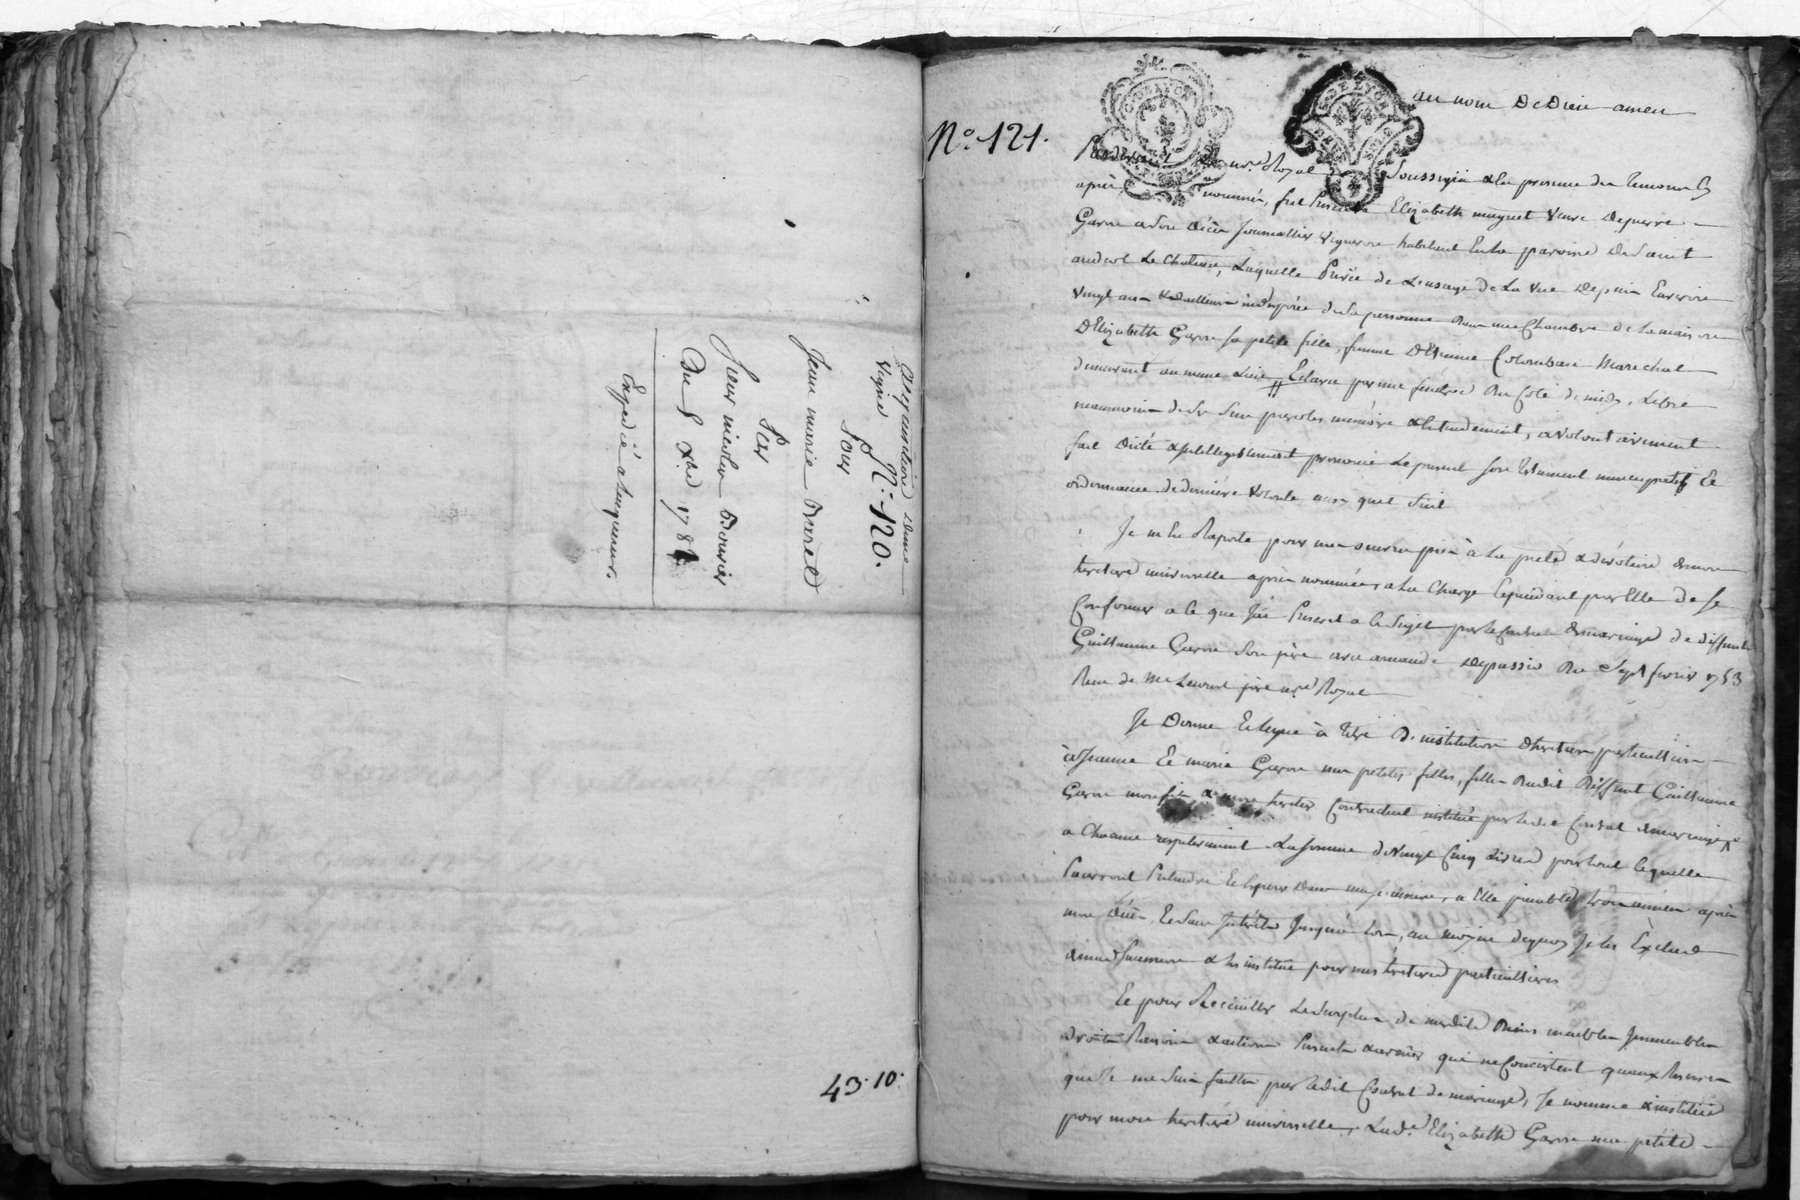 acquisition dune
Vigne
N.° 120.
Pour
Jeane marie Borel
Par
Sieur nicolas Bourier
Du 5 xbre 178
Expedié a lacquereur.
43. 10.
G. DE LYON
G. DE LYON
N.° 121.
au nom De Dieu amen
Pardevant nore. Royal Soussigné & En presence des Temoins
après nommés, fut presente Elizabeth muguet veuve De pierre
Garon a Son décès Journallier vigneron habitant En la paroisse De Saint
andeol Le Chateau, Laquelle Privée de L'usage De La Vue Depuis Environ
Vingt ans & d'ailleurs indisposée de Sa personne Dans une Chambre de La maison
D'Elizabeth Garon Sa petite fille, femme D'Etienne Colomban Marechal
demeurant au meme Lieu, Eclairée par une fenetre Du Coté de midi, Libre
neanmoins de Ses Sens parole, mémoire & Entendement, a volontairement
fait Dicté & intelligiblement prononcé Le present Son testament nuncupatif Et
ordonnance de derniere volonté ainsi quil Suit
Je m'en Raporte pour mes oeuvres pies à La pieté & devotion de mon
heritiere universelle après nommée, a La Charge Cependant par Elle de Se
Conformer a Ce que J'ai Prescrit a Ce Sujet par Le Contrat de mariage de deffunt
Guillaume Garon Son père avec Depassio Du Sept fevrier 1753
Reçu de Me Laurent père nre Royal
Je Donne Et Legue à titre D'institution d'heritiere particulliere
à Jeanne Et marie Garon mes petites filles, filles Dudit Deffunt Guillaume
Garon mon fils & mon heritier Contractuel institué par Ledit Contrat de mariage
a Chacune respectivement La Somme de Vingt Cinq Livres pour tout Ce quelles
Pourront Pretendre Et Esperer Dans ma Succession, a Elles payables trois années après
mon Décès Et Sans Intérêts Jusqu'à Lors, au moyen de quoy Je les Exclus
de ma Succession & les institue pour mes heritieres particullieres
Et pour Recueillir Le Surplus de mesdits Biens meubles Immeubles
droits Raisons & actions Presents & avenirs qui ne Concistent quaux Reserves
que Je me Suis faittes par Ledit Contrat de mariage, Je nomme & institue
pour mon heritiere universelle, Lade. Elizabeth Garon ma petite